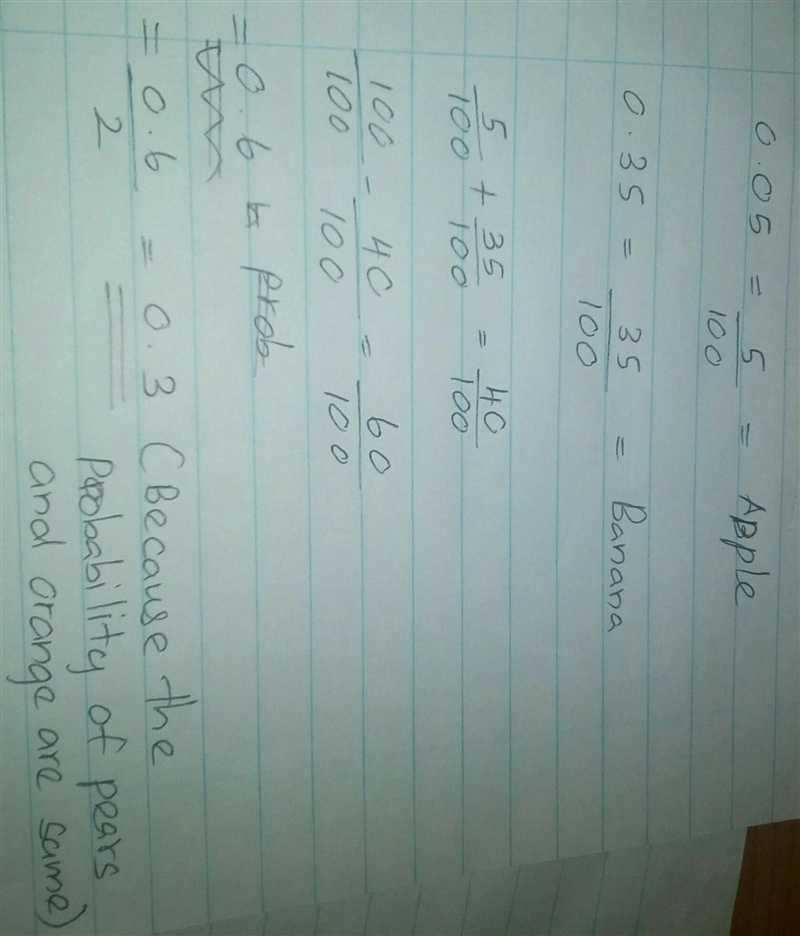 0.05 = 5/100 = Apple
0.35 = 35/100 = Banana
5/100 + 35/100 = 40/100
100/100 - 40/100 = 60/100
= 0.6 Prob
= 0.6/2 = 0.3 (Because the
Probability of pears
and orange are same)